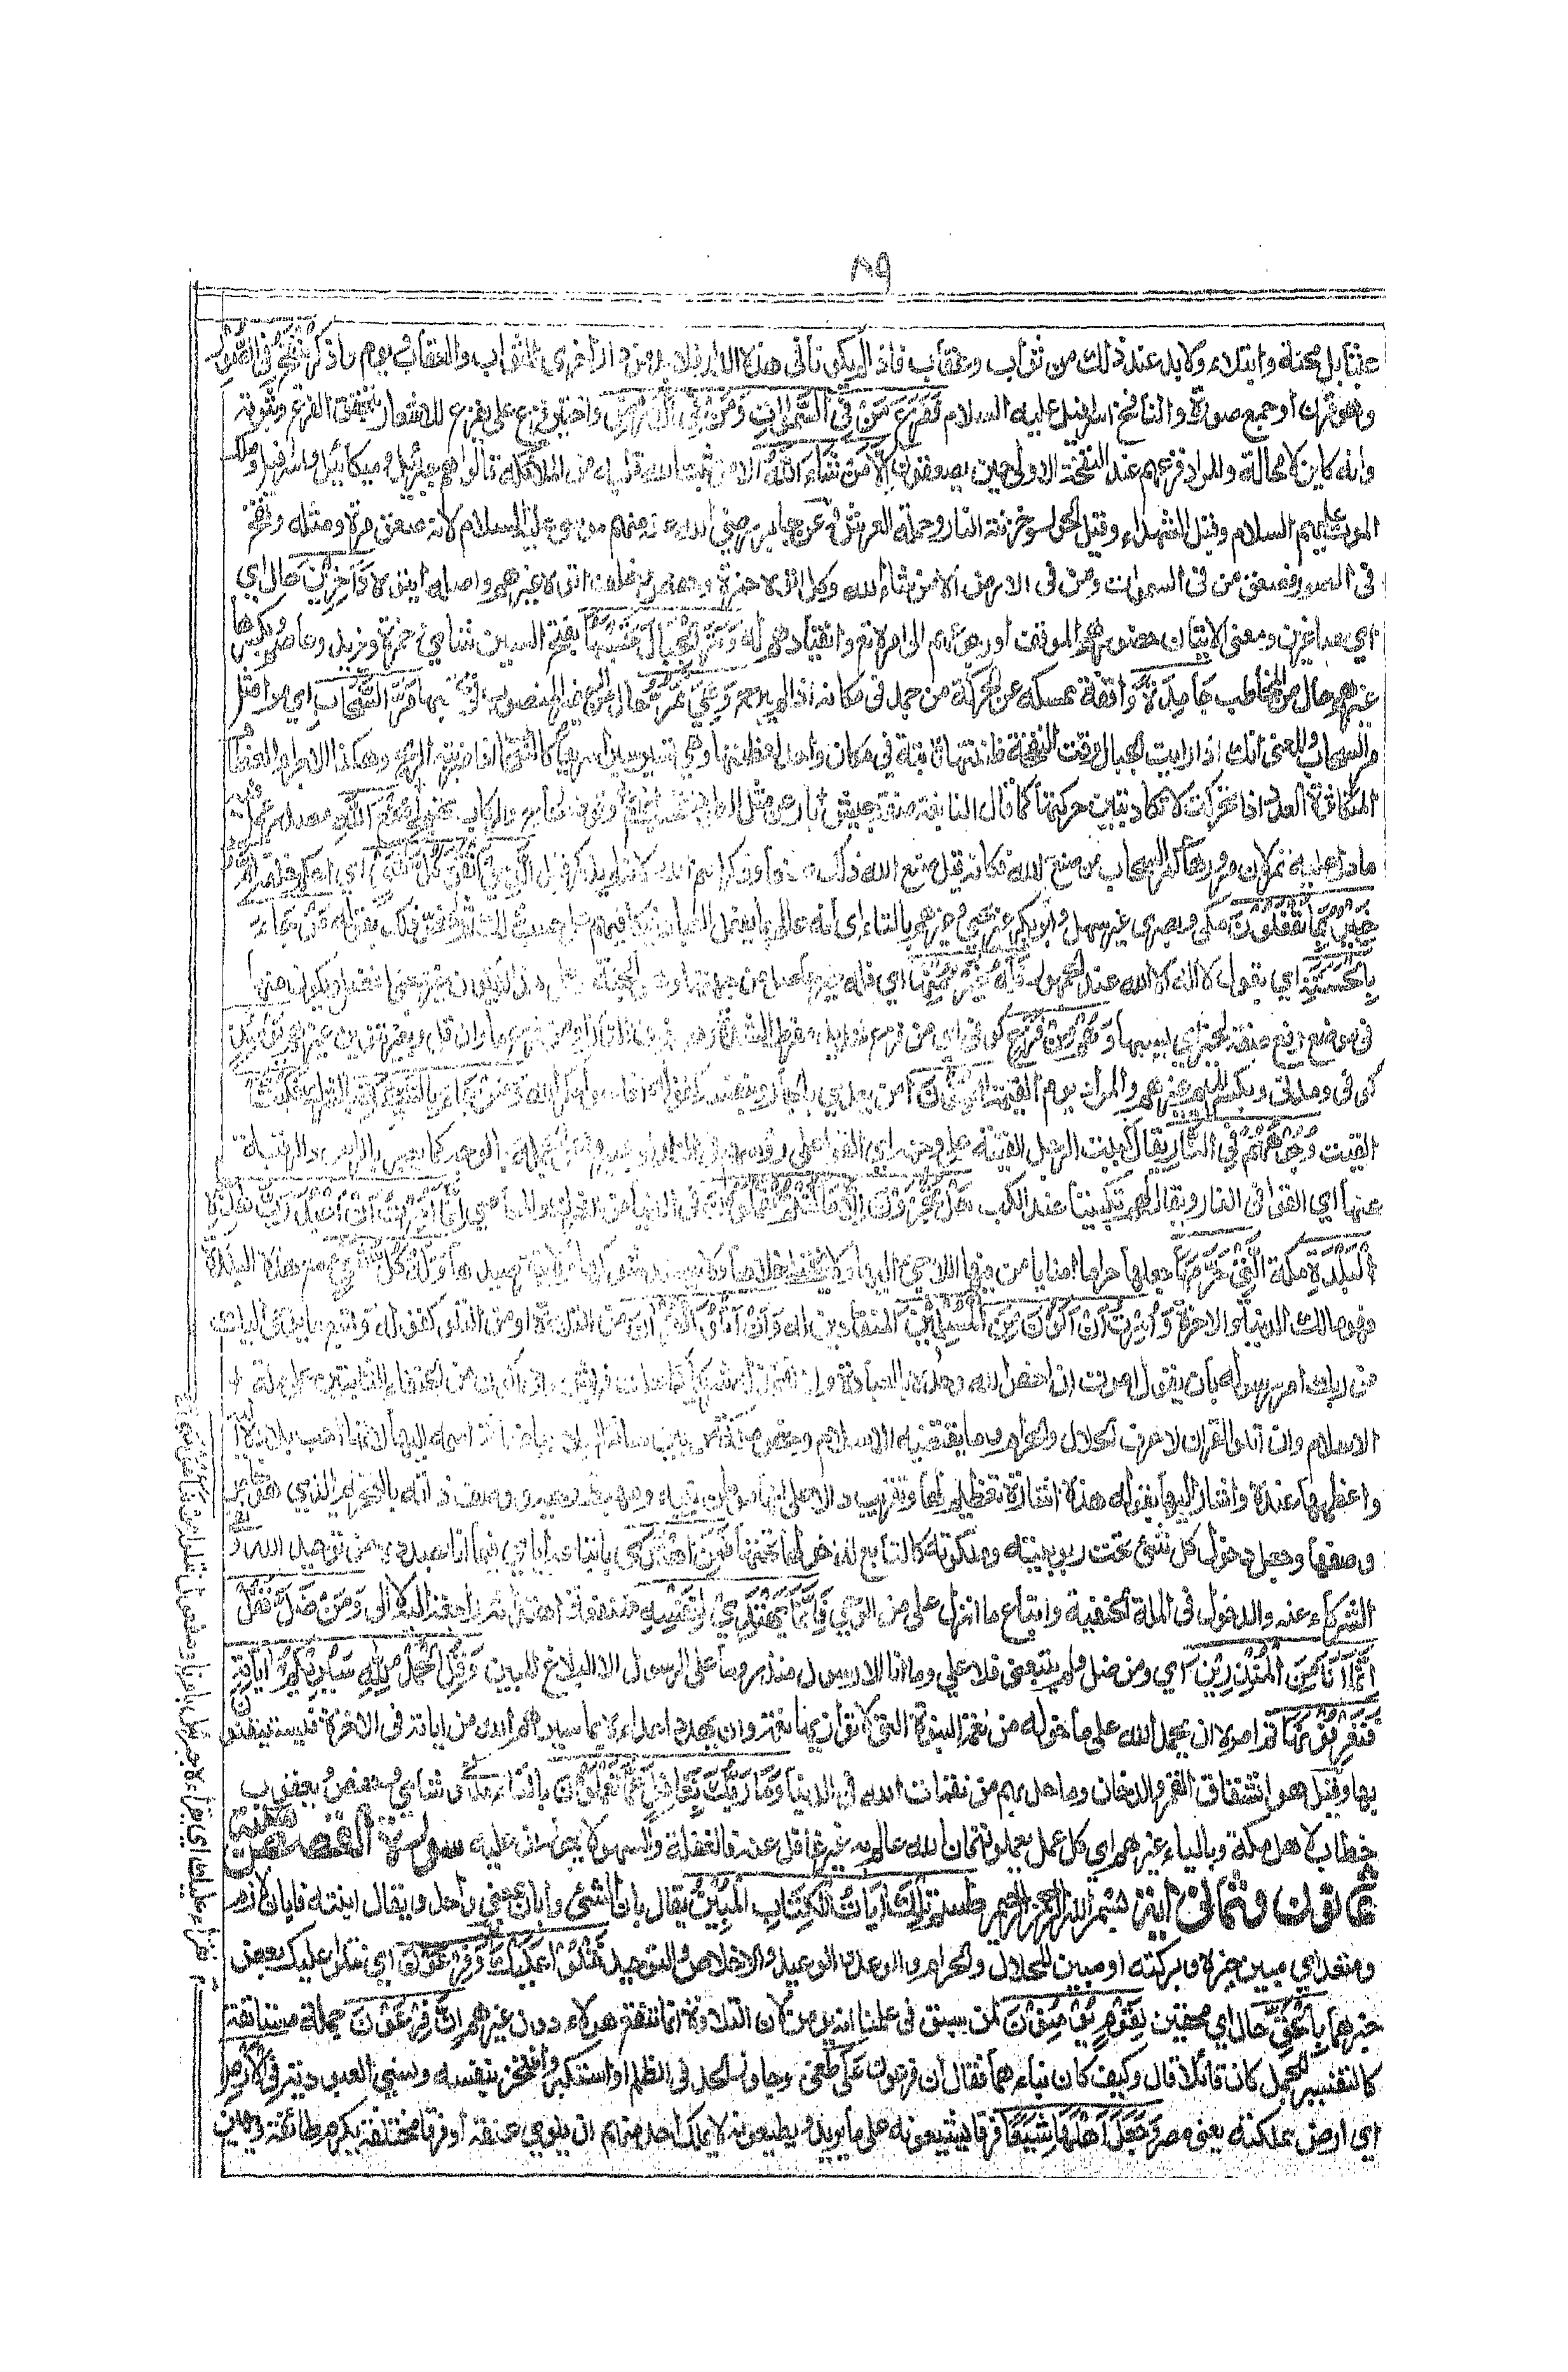 ٨٩
عبثا بل محنة وابتلاء ولا بد عند ذلك من ثواب وعقاب فاذا لم يكونا فى هذه الدار فلا بد من دار اخرى للثواب والعقاب ويوم واذكر يوم يُنْفَخُ فِي الصُّوْرِ
وهو قرن او جمع صورة والنافخ اسرافيل عليه السلام فَفَزِعَ مَنْ فِى السَّمٰوَاتِ وَمَنْ فِى الْاَرْضِ واختير فزع على يفزع للاشعار بتحقق الفزع وثبوته
وانه كاين لا محالة والمراد فزعهم عند النفخة الاولى حين يصعقون اِلَّا مَنْ شَاءَ اللّٰهُ الا من ثبت الله قلبه من الملائكة قالوا هم جبرئيل وميكائيل واسرافيل وملك
الموت عليهم السلام وقيل الشهداء وقيل الحور وخزنة النار وحملة العرش وعن جابر رضي الله عنه منهم موسى عليه السلام لانه صعق مرة ومثله ونفخ
فى الصور فصعق من فى السموات ومن فى الارض الا من شاء الله وكل اتوه حمزة وحفص وخلف اتوه غيرهم واصله اتيوه دَاخِرِيْنَ حال اي
اي صاغرين ومعنى الاتيان حضورهم الموقف او رجوعهم الى امره تع وانقيادهم له وَتَرَى الْجِبَالَ تَحْسَبُهَا بفتح السين شامي وحمزة ويزيد وعاصم وبكسرها
غيرهم حال من المخاطب جَامِدَةً واقفة ممسكة عن الحركة من جمد فى مكانه اذا لم يبرح وَهِيَ تَمُرُّ حال من الضمير المنصوب فى تحسبها مَرَّ السَّحَابِ اي مرا مثل
مر السحاب والمعنى انك اذا رايت الجبال وقت النفخة ظننتها ثابتة في مكان واحد لعظمها وهي تسير سيرا سريعا كالسحاب اذا ضربته الريح وهكذا الاجرام العظام
المتكاثرة العدد اذا تحركت لا تكاد تتبين حركتها كما قال النابغة صفة جيش بارعن مثل الطود تحسب انهم وقوف لحاج والركاب تهملج صُنْعَ اللّٰهِ مصدر عمل
ما دل عليه تمر لان مرورها كمر السحاب من صنع الله فكانه قيل صنع الله ذلك صنعا وذكر اسم الله لانه لم يذكر قبل الَّذِيْ اَتْقَنَ كُلَّ شَيْءٍ اي احكم خلقه اِنَّهُ
خَبِيْرٌ بِمَا تَفْعَلُوْنَ مكى وبصرى غير سهل وابو بكر غير يحيي وغيرهم بالتاء اى انه عالم بما يفعل العباد فيكافيهم على حسب ذلك ثم لخص ذلك بقوله مَنْ جَاءَ
بِالْحَسَنَةِ اي بقول لا اله الا الله عند الجمهور فَلَهُ خَيْرٌ مِّنْهَا اي فله خير حاصل من جهتها وهو الجنة وعلى هذا لا يكون خير بمعنى افضل ويكون منها
فى موضع رفع صفة لخير اي بسببها وَهُمْ مِّنْ فَزَعٍ كوفى اي من فزع شديد مفرط الشدة وهو خوف النار او من فزع ما وان قل وبغير تنوين غيرهم يَوْمَئِذٍ
كوفى ومدنى وبكسر الميم غيرهم والمراد يوم القيمة اٰمِنُوْنَ امن يعدي بالجار وبنفسه كقوله افامنوا مكر الله وَمَنْ جَاءَ بِالسَّيِّئَةِ بالشرك فَكُبَّتْ
القيت وُجُوْهُهُمْ فِى النَّارِ يقال كببت الرجل القيته على وجهه اي القوا على رؤسهم فى النار او عبر عن الجملة بالوجه كما يعبر بالراس والرقبة
عنها اي القوا فى النار ويقال لهم تبكيتا عند الكب هَلْ تُجْزَوْنَ اِلَّا مَا كُنْتُمْ تَعْمَلُوْنَ فى الدنيا من الشرك والمعاصي اِنَّمَا اُمِرْتُ اَنْ اَعْبُدَ رَبَّ هٰذِهِ
الْبَلْدَةِ مكة الَّذِيْ حَرَّمَهَا جعلها حراما امنا يامن فيها اللاجئ اليها ولا يختلى خلاها ولا يعضد شوكها ولا ينفر صيدها وَلَهُ كُلُّ شَيْءٍ مع هذه البلدة
فهو مالك الدنيا والاخرة وَاُمِرْتُ اَنْ اَكُوْنَ مِنَ الْمُسْلِمِيْنَ المنقادين له وَاَنْ اَتْلُوَ الْقُرْاٰنَ من التلاوة او من التلو كقوله واتبع ما يوحى اليك
من ربك امر رسوله بان يقول امرت ان اخص الله وحده بالعبادة ولا اتخذ له شريكا كما فعلت قريش وان اكون من الحنفاء الثابتين على ملة
الاسلام وان اتلو القران لاعرف الحلال والحرام وما يقتضيه الاسلام وخص مكة من بين سائر البلاد باضافة اسمه اليها لانها احب بلاده اليه
واعظمها عنده واشار اليها بقوله هذه اشارة تعظيم لها وتقريب دالا على انها موطن نبيه ومهبط وحيه ووصف ذاته بالتحريم الذي هو خاص
وصفها وجعل دخول كل شئ تحت ربوبيته وملكوته كالتابع لدخولها تحتهما فَمَنِ اهْتَدٰى باتباعه اياي فيما انا بصدده من توحيد الله ونفي
الشركاء عنه والدخول فى الملة الحنيفية واتباع ما انزل على من الوحي فَاِنَّمَا يَهْتَدِيْ لِنَفْسِهٖ فمنفعة اهتدائه راجعة اليه لا الى وَمَنْ ضَلَّ فَقُلْ
اِنَّمَا اَنَا مِنَ الْمُنْذِرِيْنَ اي ومن ضل ولم يتبعنى فلا علي وما انا الا رسول منذر وما على الرسول الا البلاغ المبين وَقُلِ الْحَمْدُ لِلّٰهِ سَيُرِيْكُمْ اٰيَاتِهٖ
فَتَعْرِفُوْنَهَا ثم امره ان يحمد الله على ما خوله من نعمة النبوة التى لا توازيها نعمة وان يهدد اعداءه بما سيريهم الله من اياته فى الاخرة فيستيقنون
بها وقيل هو انشقاق القمر والدخان وما حل بهم من نقمات الله فى الدنيا وَمَا رَبُّكَ بِغَافِلٍ عَمَّا تَعْمَلُوْنَ بالتاء مدنى شامي وحفص ويعقوب
خطاب لاهل مكة وبالياء غيرهم اي كل عمل يعملونه فان الله عالم به غير غافل عنه فالغفلة والسهو لا يجوزان عليه سورة القصص مكية
ثمانون وثمانى اية بسم الله الرحمن الرحيم طسم تِلْكَ اٰيَاتُ الْكِتَابِ الْمُبِيْنِ يقال بان الشئ وابان بمعنى واحد ويقال ابنته فابان لازم
ومتعد اي مبين خيره وبركته او مبين للحلال والحرام والوعد والوعيد والاخلاص والتوحيد نَتْلُوْا عَلَيْكَ اي نتلوا عليك بعض
خبرهما بِالْحَقِّ حال اي محقين لِقَوْمٍ يُّؤْمِنُوْنَ لمن سبق فى علمنا انه يؤمن لان التلاوة انما تنفع هؤلاء دون غيرهم اِنَّ فِرْعَوْنَ جملة مستانفة
كالتفسير للمجمل كان قائلا قال وكيف كان نباءهما فقال ان فرعون عَلَا طغى وجاوز الحد فى الظلم او استكبر وافتخر بنفسه ونسي العبودية فِى الْاَرْضِ
اي ارض مملكته يعنى مصر وَجَعَلَ اَهْلَهَا شِيَعًا فرقا يشيعونه على ما يريد ويطيعونه لا يملك احد منهم ان يلوي عنقه او فرقا مختلفة يكرم طائفة ويهين